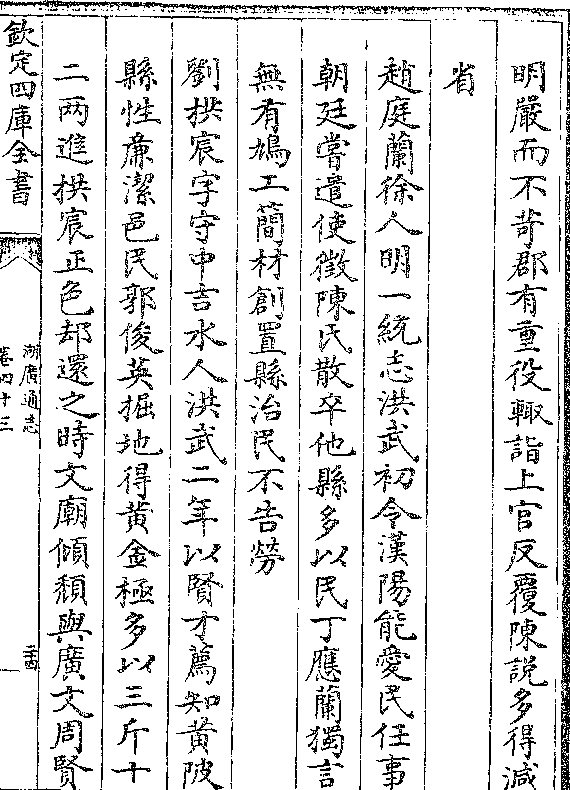 明嚴而不苛郡有重役輙詣上官反覆陳說多得減
省
趙庭蘭徐人明一統志洪武初令漢陽能愛民任事
朝廷嘗遣使徵陳氏散卒他縣多以民丁應蘭獨言
無有鳩工簡材創置縣治民不告勞
劉拱宸字守中吉水人洪武二年以賢才薦知黄陂
縣性亷潔邑民郭俊英掘地得黄金極多以三斤十
二两進拱宸正色却還之時文廟傾頽與廣文周賢
欽定四庫全書
湖廣通志
卷四十三
二十四